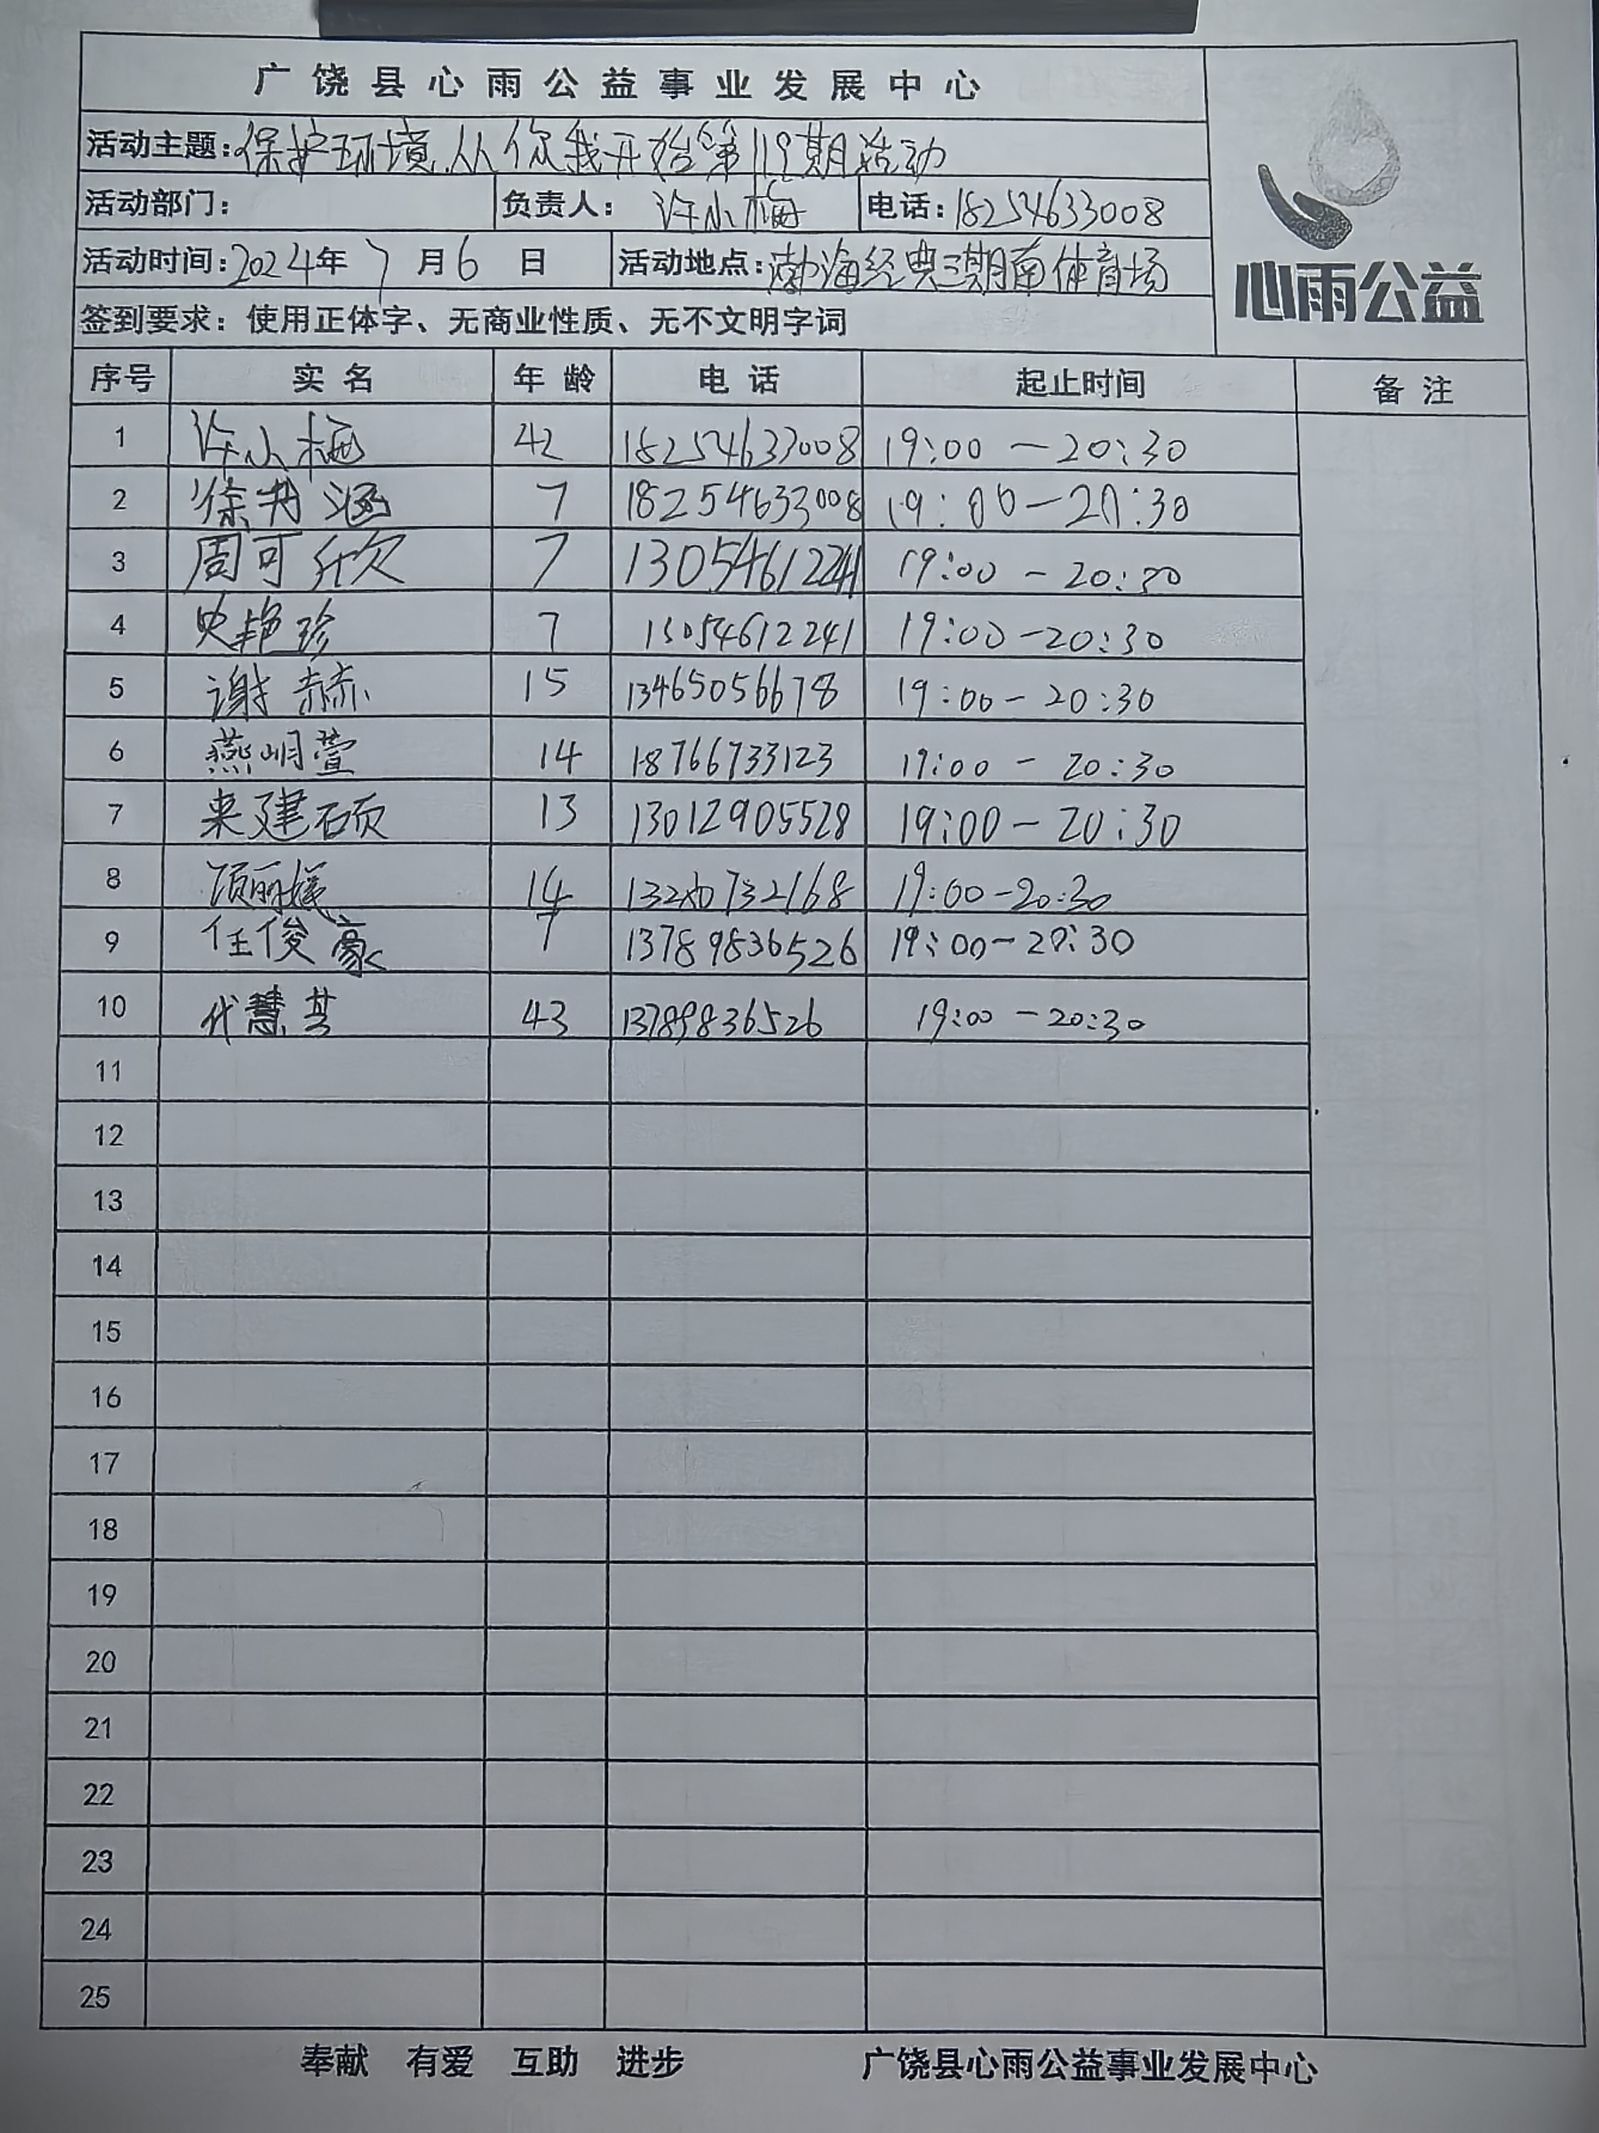 广饶县心雨公益事业发展中心
活动主题:保护环境.从你我开始第119期活动
活动部门: 负责人: 许小梅 电话:18254633008
活动时间:2024年7月6日 活动地点:渤海经典三期南体育场
心雨公益
签到要求:使用正体字、无商业性质、无不文明字词
序号 实名 年龄 电话 起止时间 备注
1 许小梅 42 18254633008 19:00-20:30
2 徐书涵 7 18254633008 19:00-20:30
3 周可欣 7 13054612241 19:00-20:30
4 史艳珍 7 13054612241 19:00-20:30
5 谢赫 15 13465056678 19:00-20:30
6 燕明萱 14 18766733123 19:00-20:30
7 来建硕 13 13012905528 19:00-20:30
8 14 19:00-20:30
9 任俊豪 7 13789836526 19:00-20:30
10 代慧芸 43 13789836526 19:00-20:30
11
12
13
14
15
16
17
18
19
20
21
22
23
24
25
奉献 有爱 互助 进步 广饶县心雨公益事业发展中心